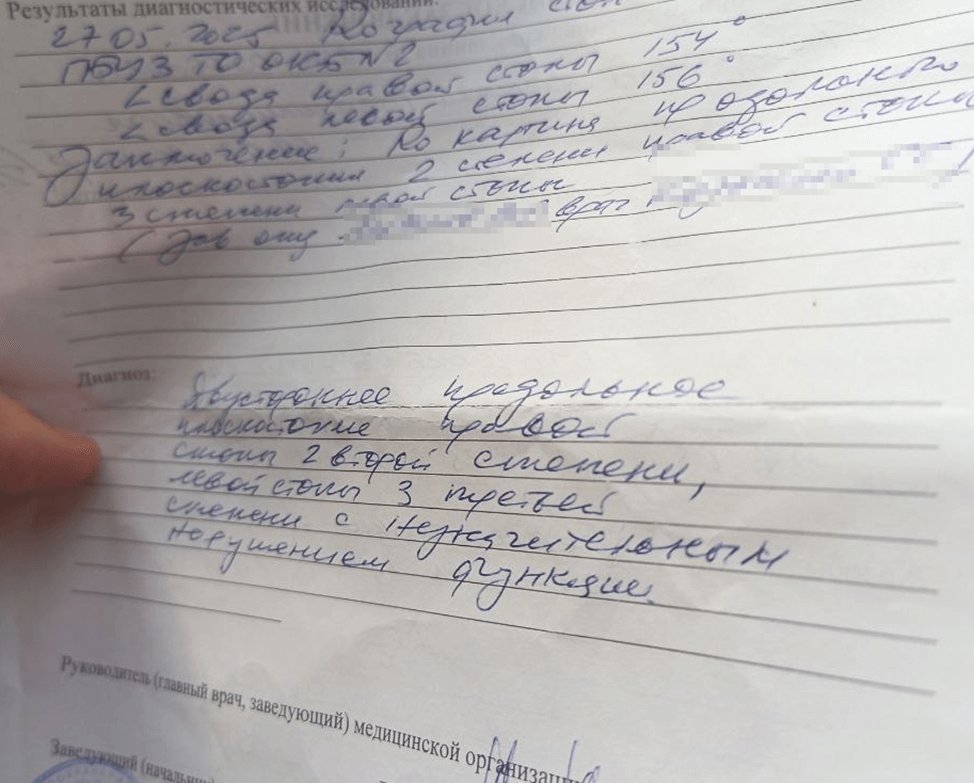 Результаты диагностических исследований:
27.05.2025 Rо графия стоп
ГБУЗ ТО ОКБ №2
∠ свода правой стопы 154°
∠ свода левой стопы 156°
Заключение: Rо картина продольного
плоскостопия 2 степени правой стопы
3 степени левой стопы
(Зав отд. врач
Диагноз:
Двустороннее продольное
плоскостопие правой
стопы 2 второй степени,
левой стопы 3 третьей
степени с незначительным
нарушением функции.
Руководитель (главный врач, заведующий) медицинской организации
Заведующий (начальник)